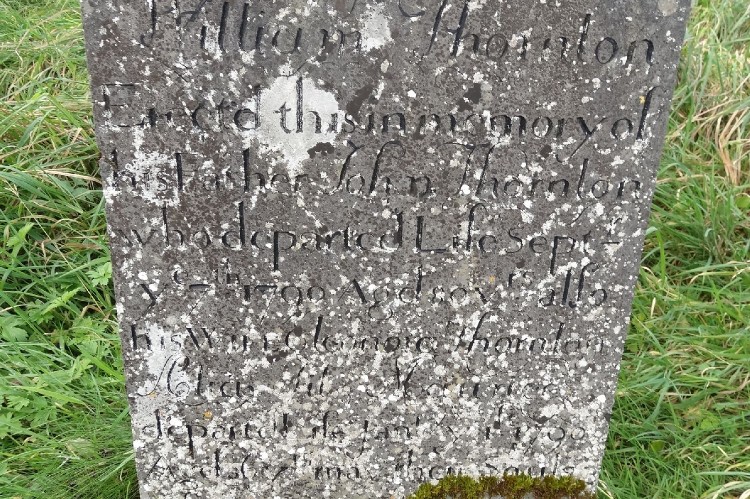 William Thornton
Erectd this in memory of
his Father John Thornton
who departed Life Sept
ye 7th 1799 Aged 80 yrs also
his Wife Eleonora Thornton
Alias
departd life Jany ye 1799
Aged may their Souls